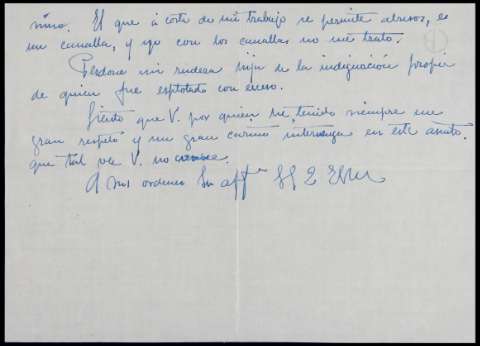 nimo. El que á costa de mi trabajo se permite abusos, es
un canalla, y yo con los canallas no me trato.
Perdone mi rudeza hija de la indignación propia
de quien fue explotado con exceso.
Siento que V. por quien he tenido siempre un
gran respeto y un gran cariño intervenga en este asunto.
que tal vez V. no conoce.
A sus ordenes su aff